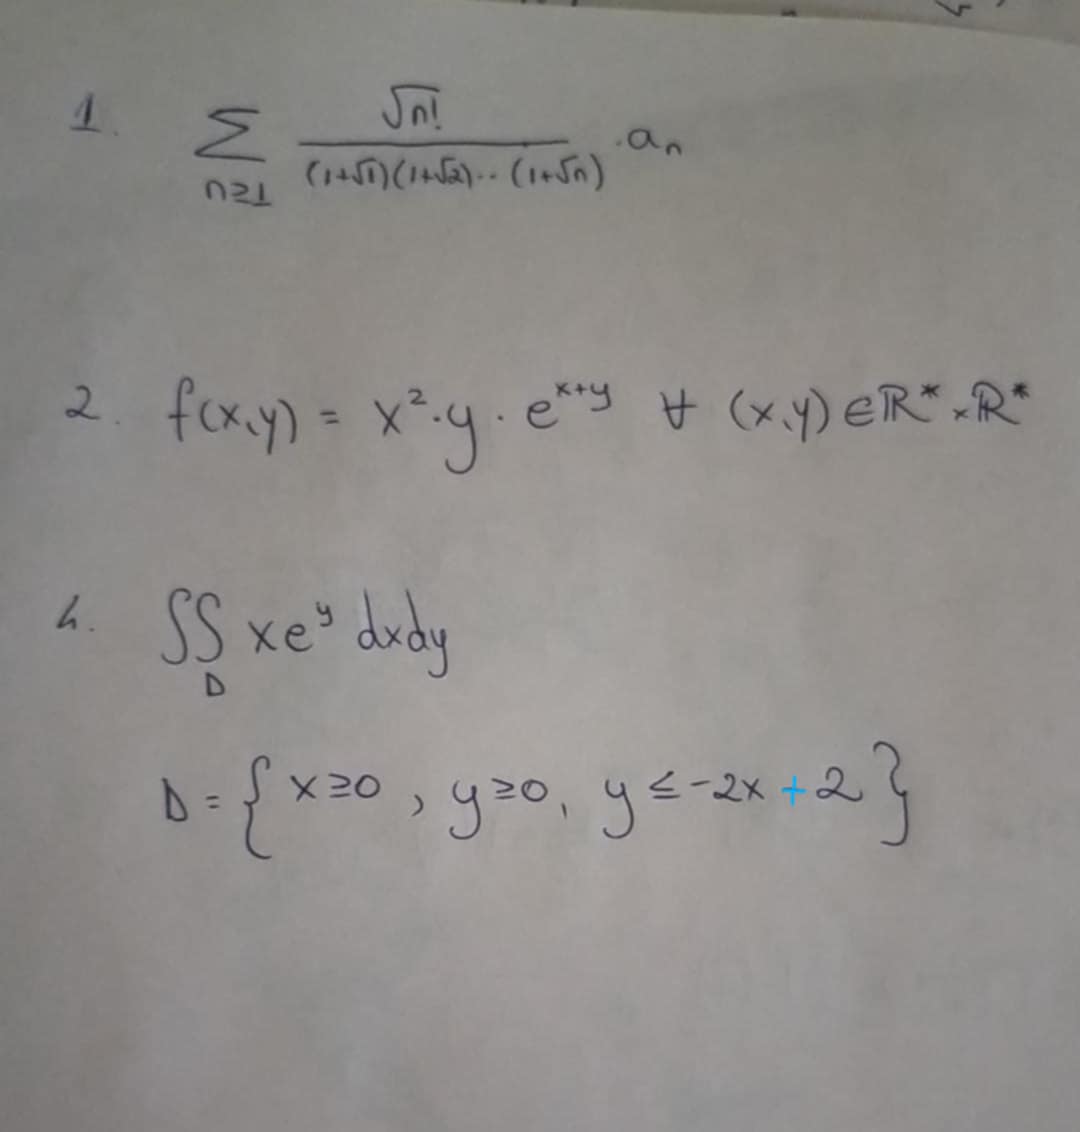 1. ∑ n≥1 √n! / (1+√1)(1+√2)·· (1+√n) · aₙ
2. f(x,y) = x²·y · e^(x+y) ∀ (x,y) ∈ ℝ* × ℝ*
4. ∬ D xe^y dxdy
D = { x≥0 , y≥0, y ≤ -2x + 2 }